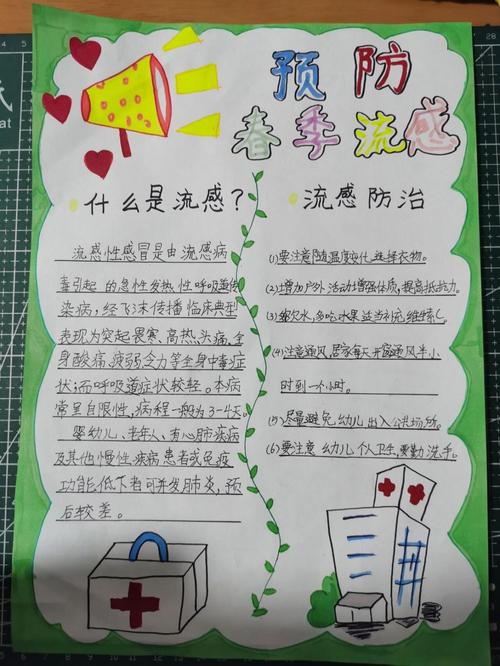 预防
春季流感
什么是流感?
流感性感冒是由流感病
毒引起的急性发热性呼吸道传
染病,经飞沫传播临床典型
表现为突起畏寒、高热、头痛、全
身酸痛、疲弱乏力等全身中毒症
状;而呼吸道症状较轻。本病
常呈自限性,病程一般为3-4天
婴幼儿、老年人、有心肺疾病
及其他慢性疾病患者或免疫
功能低下者可并发肺炎,预
后较差。
流感防治
(1)要注意随温度变化选择衣物。
(2)增加户外活动增强体质,提高抵抗力。
(3)多饮水,多吃水果适当补充维维C
(4)注意通风,居家每天开窗通风半小
时到一个小时。
(5)尽量避免幼儿出入公共场所。
(6)要注意幼儿个人卫生,要勤洗手。